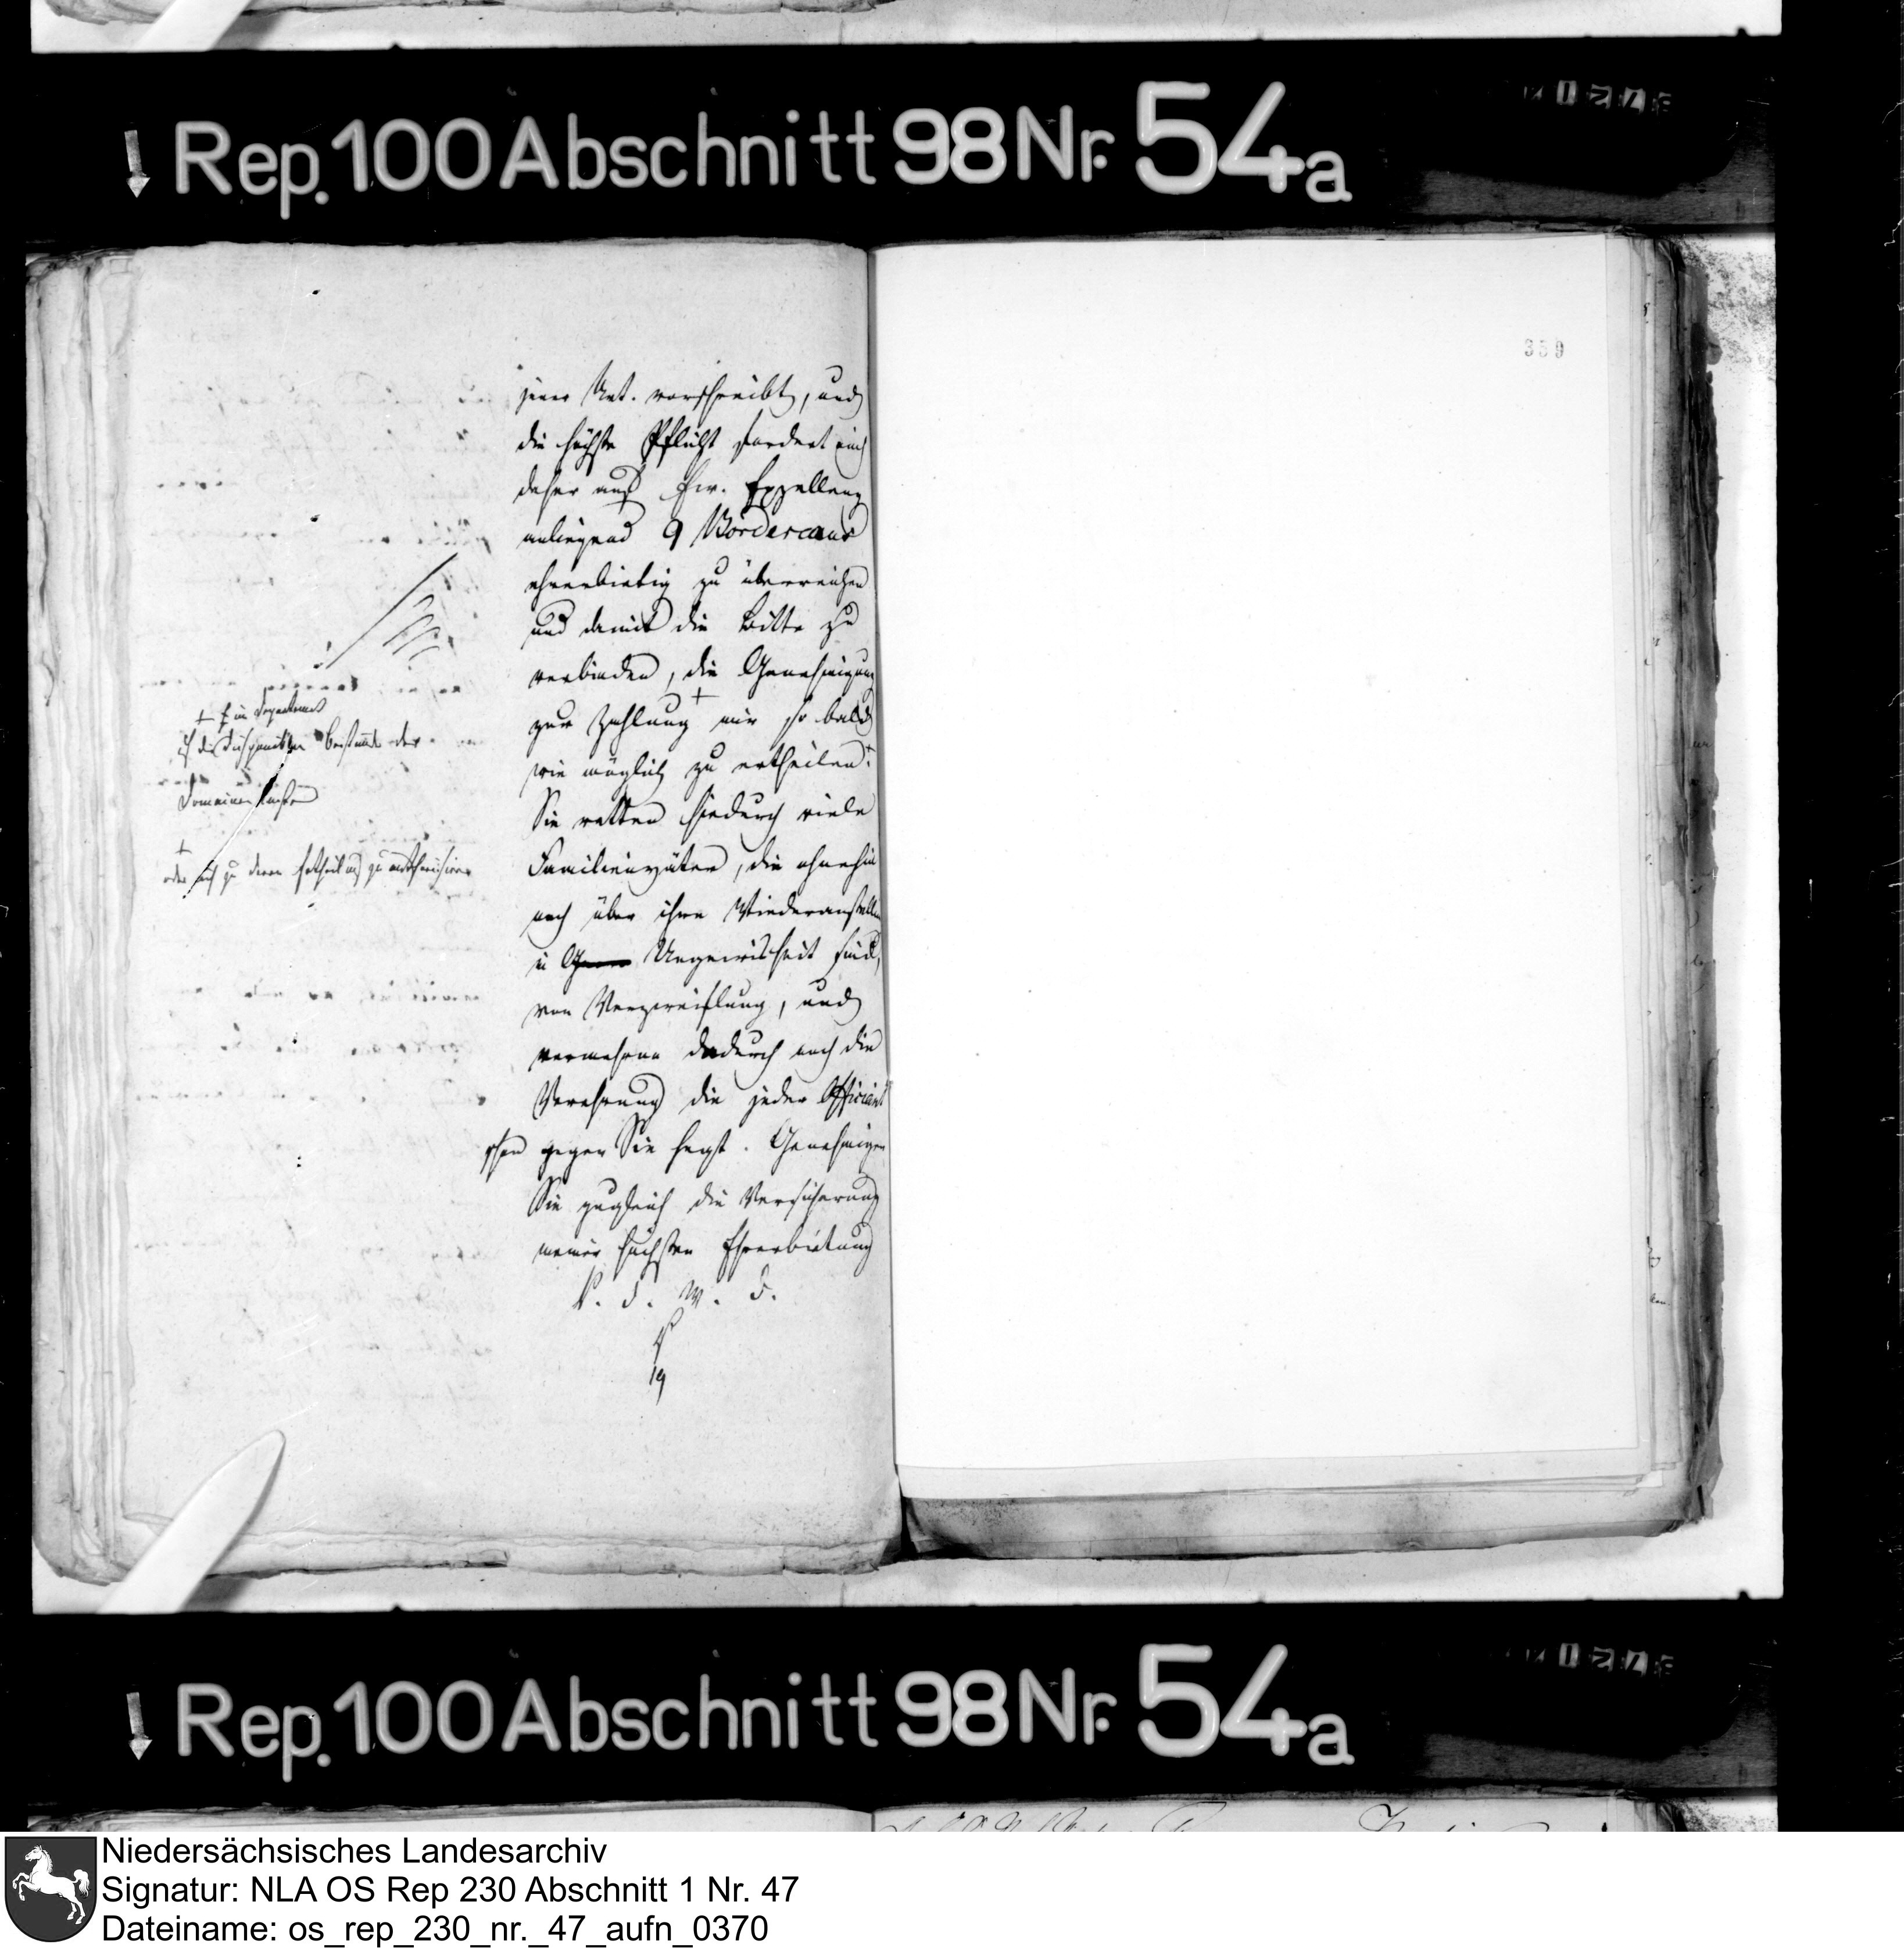 Rep. 100 Abschnitt 98 Nr. 54a
359
jener Art. vorschreibt, und
die höchste Pflicht fordert mich
daher auf Ew. Exzellenz
anliegend 9 Bordereaus
ehrerbietig zu überreichen
und damit die Bitte zu
verbinden, die Genehmigung
zur Zahlung + mir so bald
wie möglich zu ertheilen. +
Sie retten hiedurch viele
Familienväter, die ohnehin
noch über ihre Wiederanstellung
in Ungewisheit sind,
von Verzweiflung, und
vermehren dadurch noch die
Verehrung die jeder Officiant
schon gegen Sie hegt. Genehmigen
Sie zugleich die Versicherung
meiner höchsten Ehrerbietung
D.
19
+ im Departement
disponiblen Bestande der
Domainen
+
oder mich zu deren Ertheilung zu authorisiren
Rep. 100 Abschnitt 98 Nr. 54a
Niedersächsisches Landesarchiv
Signatur: NLA OS Rep 230 Abschnitt 1 Nr. 47
Dateiname: os_rep_230_nr._47_aufn_0370